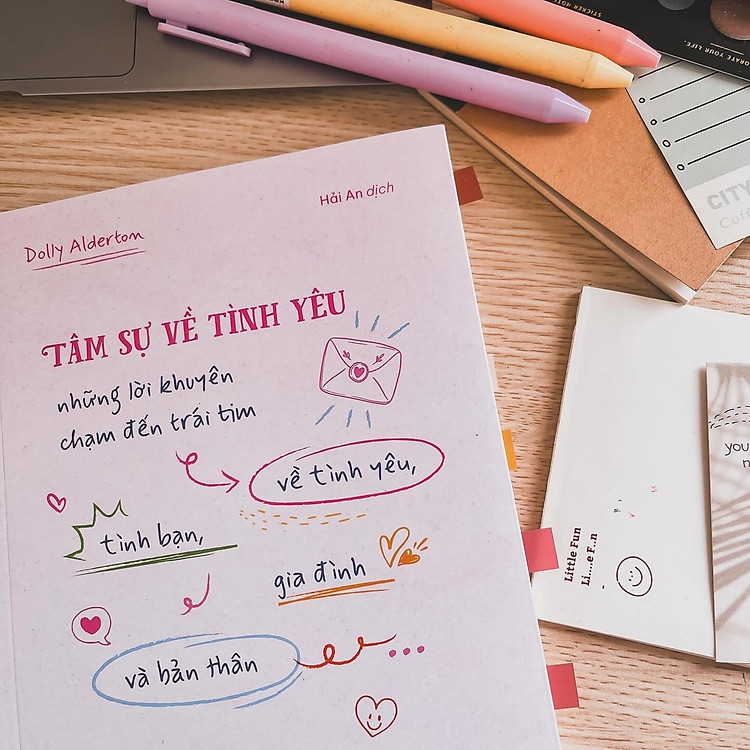 Dolly Alderton
Hải An dịch
TÂM SỰ VỀ TÌNH YÊU
những lời khuyên
chạm đến trái tim
về tình yêu,
tình bạn,
gia đình
và bản thân
STICKER
ORATE YOUR LIFE.
CITY
Little Fun
Li....e F..n
you